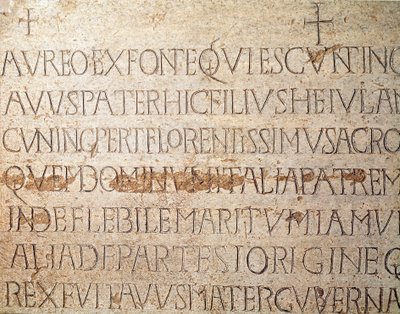 AVREOEXFONTEQVIESCVNTINO
AVVSPATERHICFILIVSHEIVLAN
CVNINCPERTFLORENTISSIMVSACRO
QVEMDOMINVMITALIAPATREM
INDEFLEBILEMARITVMIAMVI
ALIADEPARTESIORIGINEQ
REXFVITAVVSMATERGVBERNA